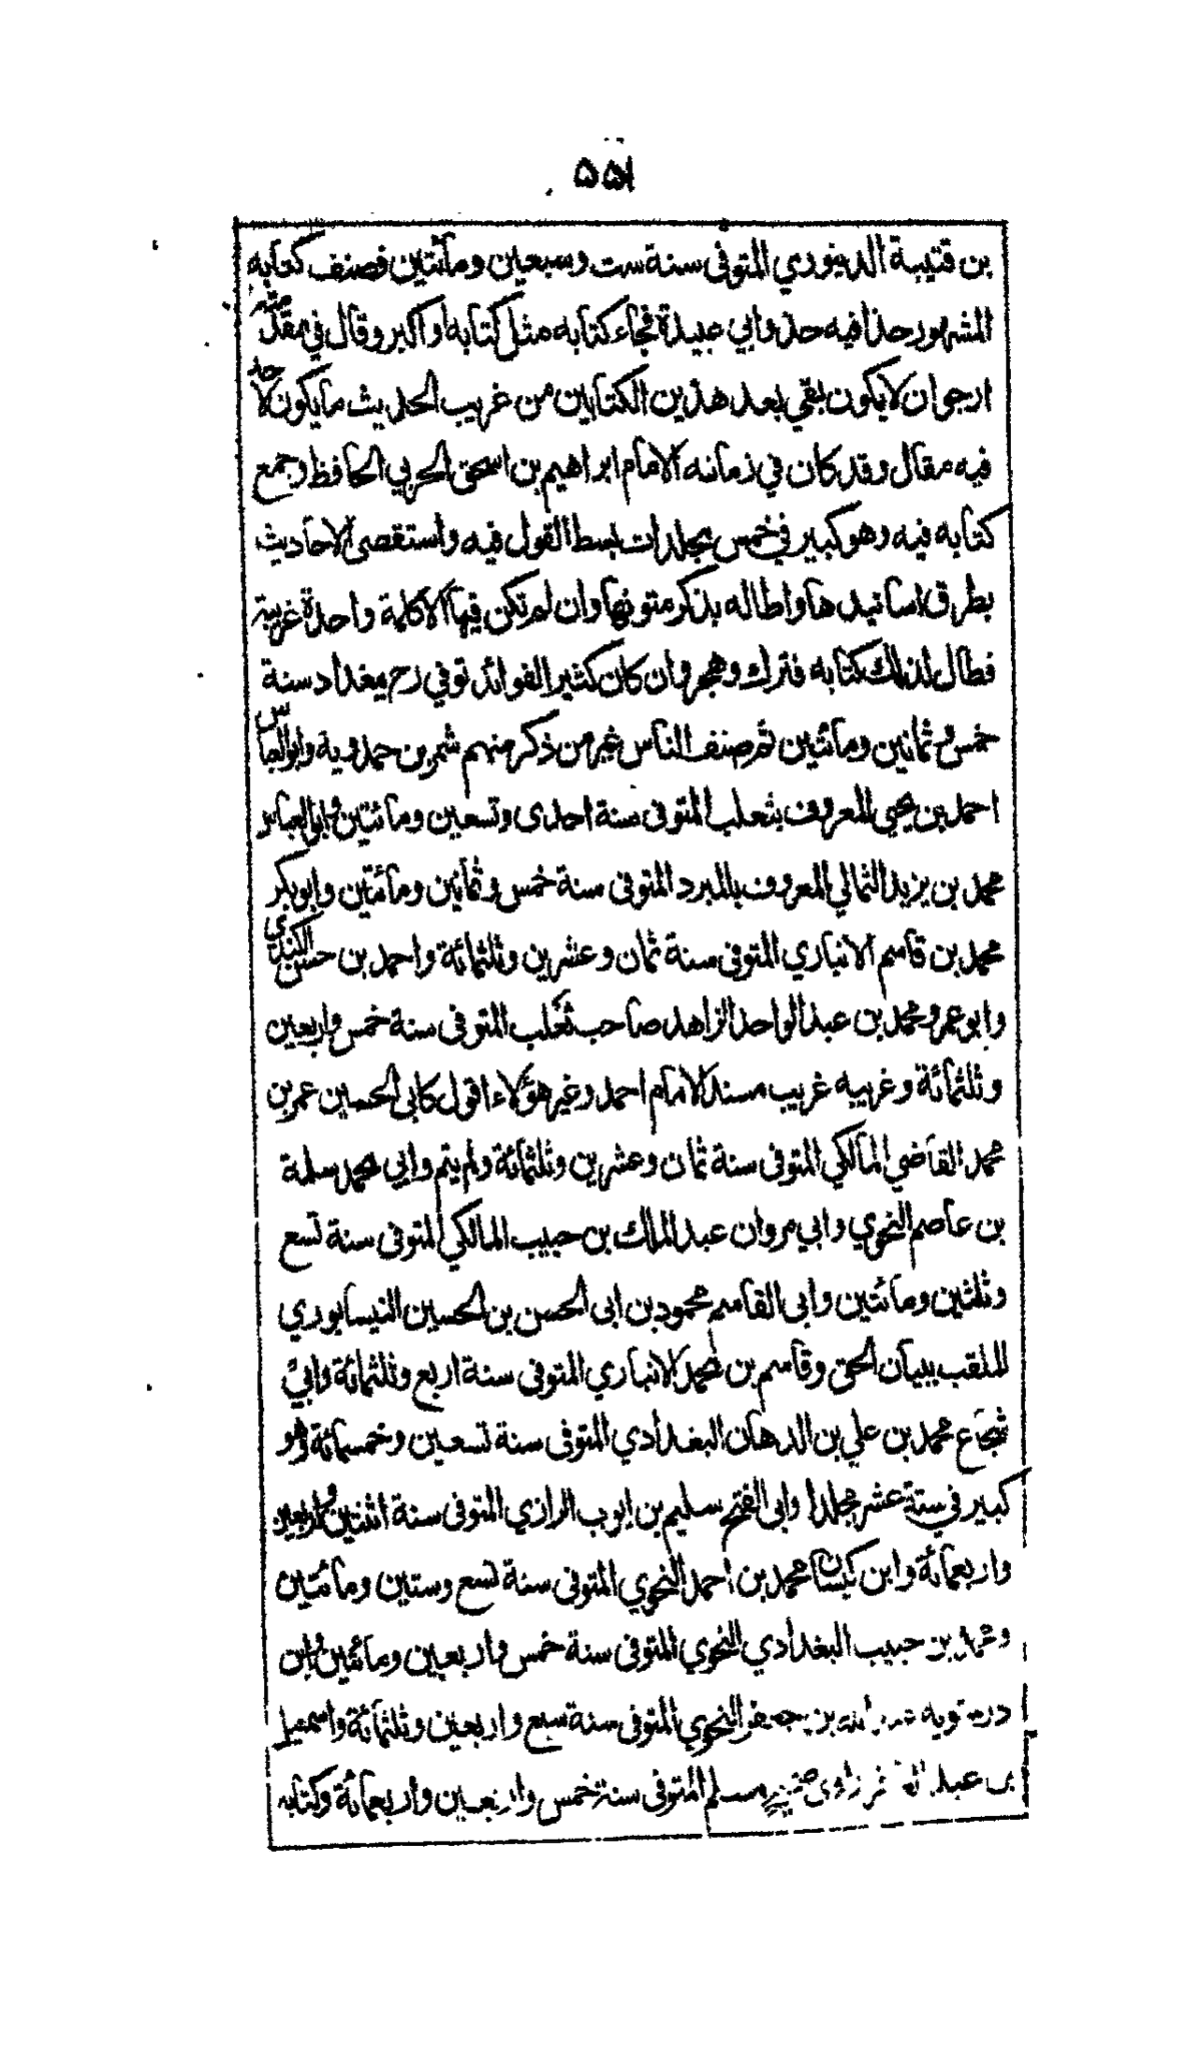 ٥٥١
بن قتيبة الدينوري المتوفى سنة ست وسبعين ومأتين فصنف كتابه
المشهور حذا فيه حذو ابي عبيدة فجاء كتابه مثل كتابه او اكبر وقال في مقدمته
ارجو ان لا يكون بقي بعد هذين الكتابين من غريب الحديث ما يكون لاحد
فيه مقال وقد كان في زمانه الامام ابراهيم بن اسحق الحربي الحافظ وجمع
كتابه فيه وهو كبير في خمس مجلدات بسط القول فيه واستقصى الاحاديث
بطرق اسانيدها واطاله بذكر متونها وان لم تكن فيها الا كلمة واحدة غريبة
فطال لذلك كتابه فترك وهجر وان كان كثير الفوائد توفي رح ببغداد سنة
خمس وثمانين ومأتين ثم صنف الناس غير من ذكر منهم شمر بن حمدوية وابو العباس
احمد بن يحيى المعروف بثعلب المتوفى سنة احدى وتسعين ومائتين وابو العباس
محمد بن يزيد الثمالي المعروف بالمبرد المتوفى سنة خمس وثمانين ومأئتين وابو بكر
محمد بن قاسم الانباري المتوفى سنة ثمان وعشرين وثلثمائة واحمد بن حسن الكندي
وابو عمرو محمد بن عبد الواحد الزاهد صاحب ثعلب المتوفى سنة خمس واربعين
وثلثمائة وغريبه غريب مسند الامام احمد وغير هؤلاء اقول كابى الحسين عمر بن
محمد القاضي المالكي المتوفى سنة ثمان وعشرين وثلثمائة ولم يتم وابي محمد سلمة
بن عاصم النحوي وابي مروان عبد الملك بن حبيب المالكي المتوفى سنة تسع
وثلثين ومائتين وابى القاسم محمود بن ابى الحسن بن الحسين النيسابوري
الملقب ببيان الحق وقاسم بن محمد الانباري المتوفى سنة اربع وثلثمائة وابي
شجاع محمد بن علي بن الدهان البغدادي المتوفى سنة تسعين وخمسمائة وهو
كبير في ستة عشر مجلدا وابى الفتح سليم بن ايوب الرازي المتوفى سنة اثنتين واربعين
واربعمائة وابن كيسان محمد بن احمد النحوي المتوفى سنة تسع وستين ومائتين
ومحمد بن حبيب البغدادي النحوي المتوفى سنة خمس واربعين ومائتين وابن
درستويه عبد الله بن جعفر النحوي المتوفى سنة سبع واربعين وثلثمائة واسمعيل
بن عبد مسلم المتوفى سنة خمس واربعين واربعمائة وكتابه